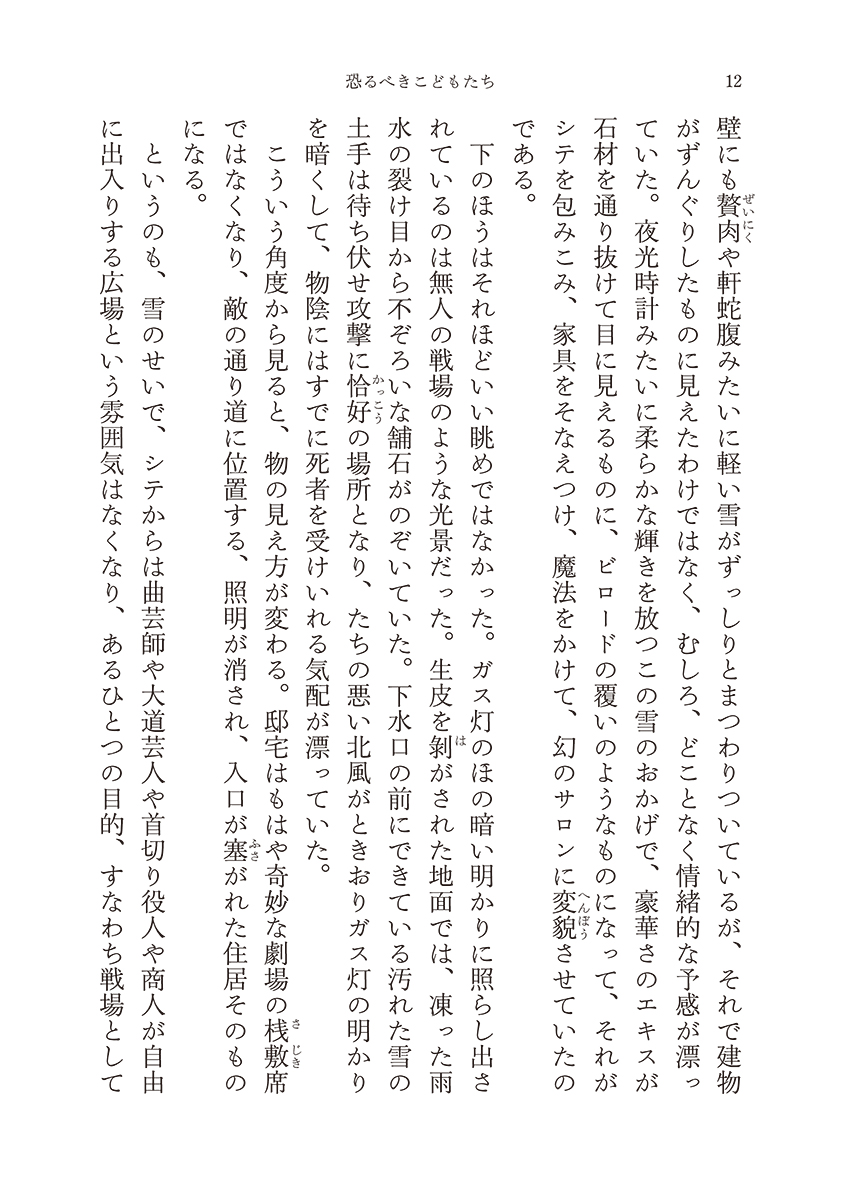 恐るべきこどもたち
12
壁にも贅肉や軒蛇腹みたいに軽い雪がずっしりとまつわりついているが、それで建物
がずんぐりしたものに見えたわけではなく、むしろ、どことなく情緒的な予感が漂っ
ていた。夜光時計みたいに柔らかな輝きを放つこの雪のおかげで、豪華さのエキスが
石材を通り抜けて目に見えるものに、ビロードの覆いのようなものになって、それが
シテを包みこみ、家具をそなえつけ、魔法をかけて、幻のサロンに変貌させていたの
である。
下のほうはそれほどいい眺めではなかった。ガス灯のほの暗い明かりに照らし出さ
れているのは無人の戦場のような光景だった。生皮を剝がされた地面では、凍った雨
水の裂け目から不ぞろいな舗石がのぞいていた。下水口の前にできている汚れた雪の
土手は待ち伏せ攻撃に恰好の場所となり、たちの悪い北風がときおりガス灯の明かり
を暗くして、物陰にはすでに死者を受けいれる気配が漂っていた。
こういう角度から見ると、物の見え方が変わる。邸宅はもはや奇妙な劇場の桟敷席
ではなくなり、敵の通り道に位置する、照明が消され、入口が塞がれた住居そのもの
になる。
というのも、雪のせいで、シテからは曲芸師や大道芸人や首切り役人や商人が自由
に出入りする広場という雰囲気はなくなり、あるひとつの目的、すなわち戦場として
ぜいにく
へんぼう
は
かっこう
さじき
ふさ